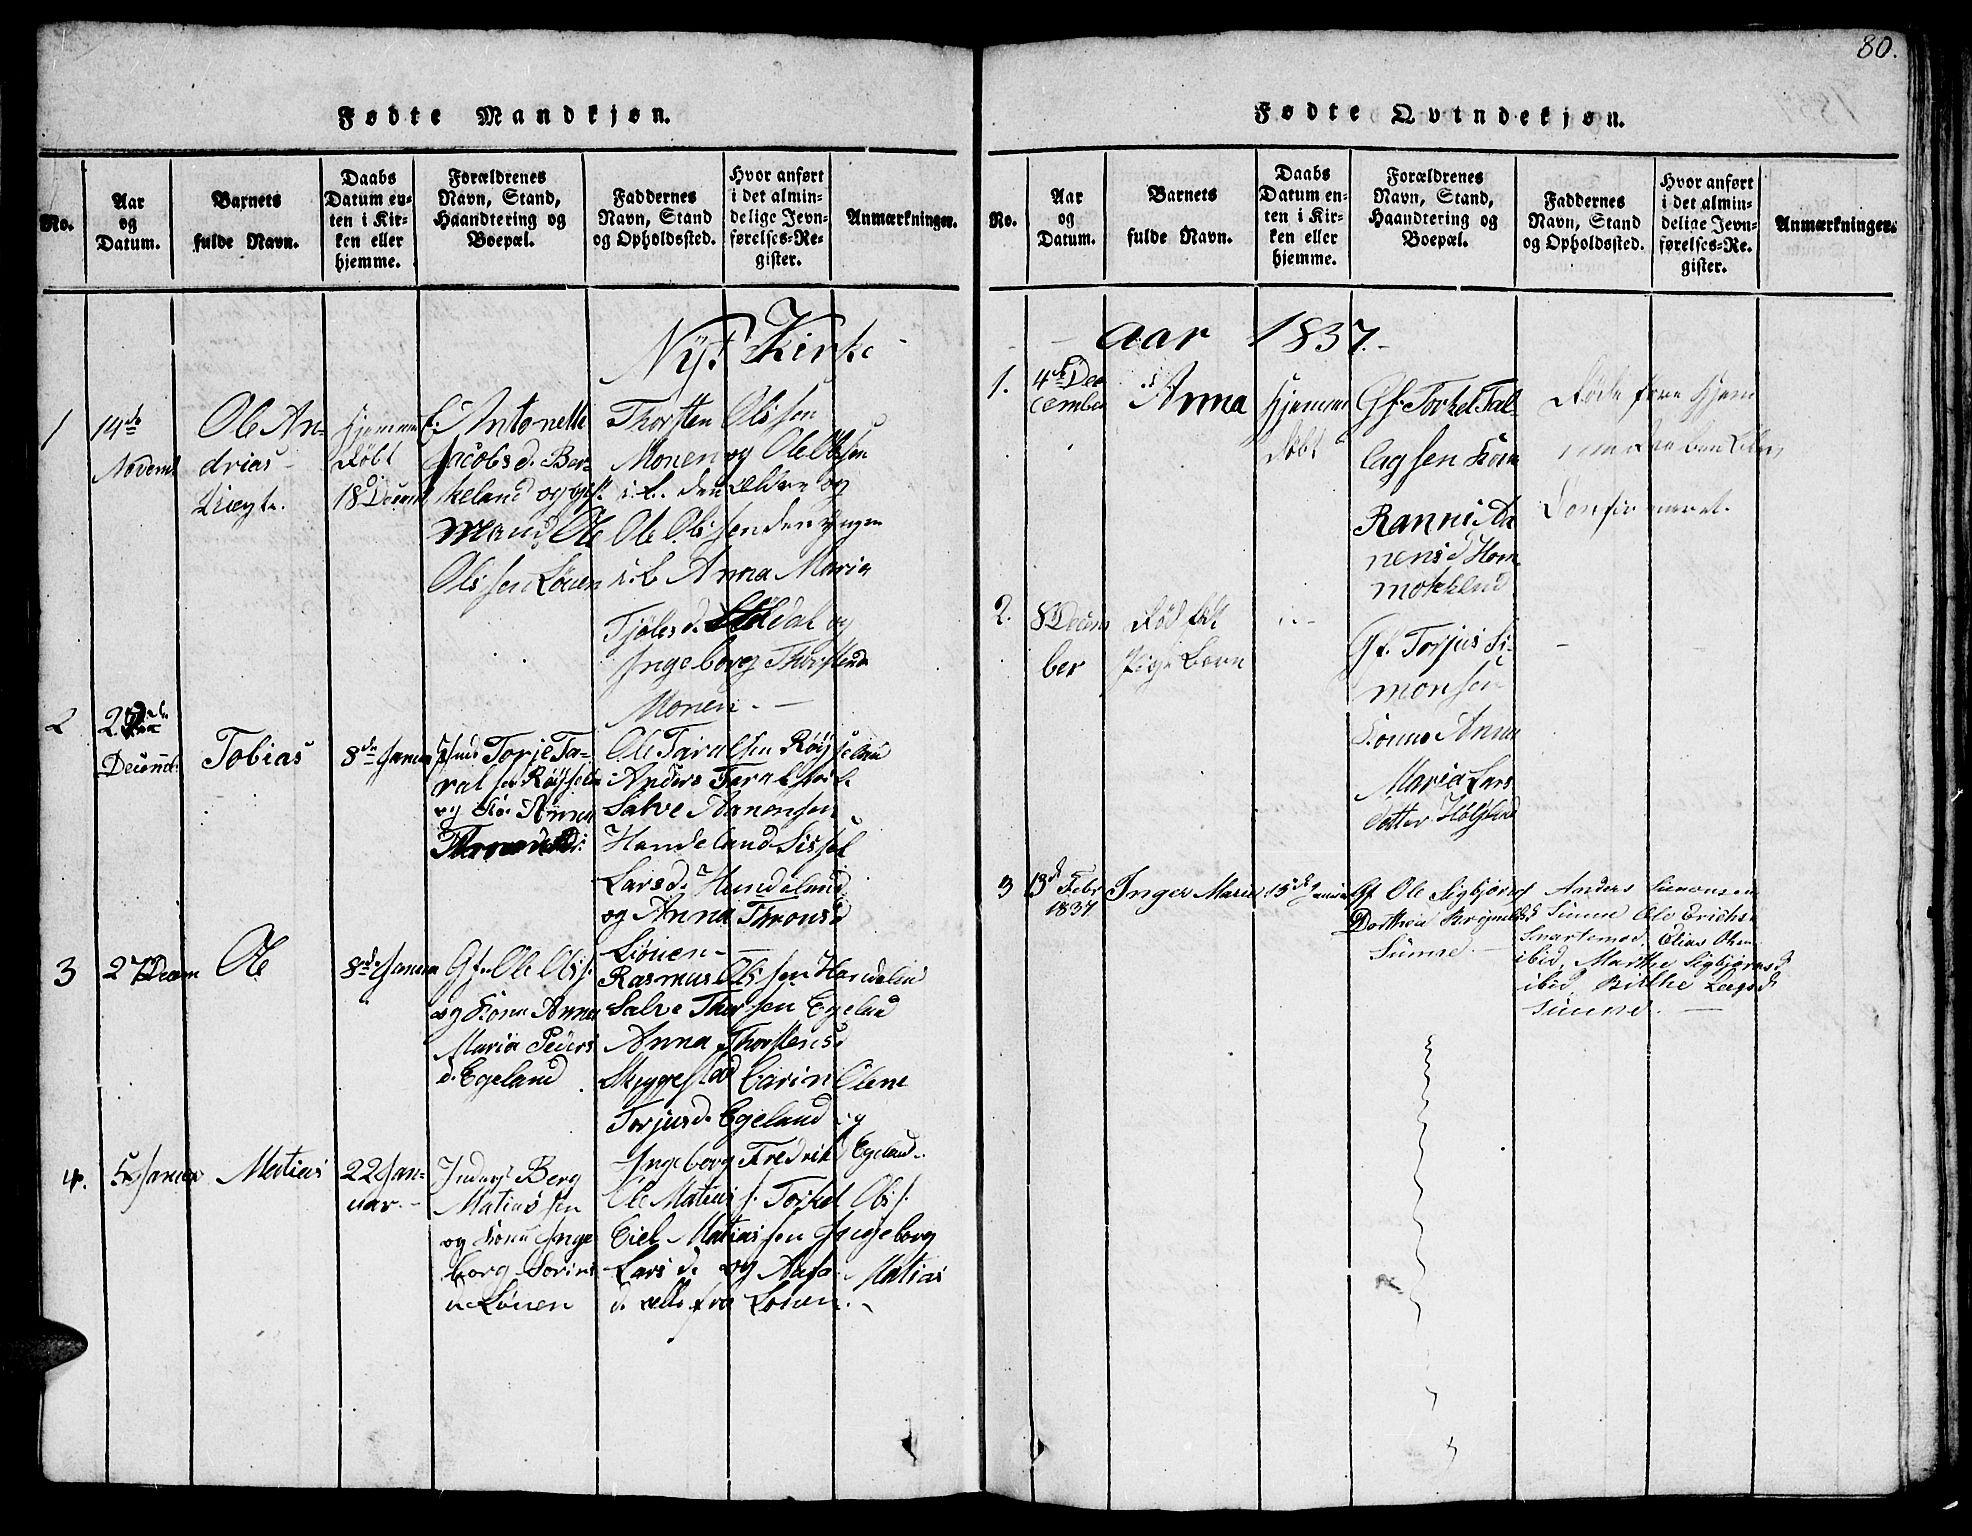 80.
Fødte Mandkjøn.
No.
Aar
og
Datum.
Barnets
fulde Navn.
Daabs
Datum en-
ten i Kir-
ken eller
hjemme.
Forældrenes
Navn, Stand,
Haandtering og
Boepæl.
Faddernes
Navn, Stand
og Opholdssted.
Hvor anført
i det almin-
delige Jevn-
førelses-Re-
gister.
Anmærkninger.
Nyt Kirke
1
14de
Novemb
Ole An-
drias
Hjemme
døbt
18 Decemb
Antonette
Jacobsd. Ber-
keland og
mand Ole
Olissen Löuen
Thorsten Olissen
Monen og Ole Olissen
i.b. den ældre og
Ole Olissen den yngre
i.b. Anna Maria
Tjölesd. og
Ingeborg Thorstensd
Monen.
2
Decemb.
Tobias
8de Januar
Torje Ta-
ralsen Röysel
og Ko. Anna
Ole Taralsen Röyseland
Anders Taralsen
Salve Aanensen
Handeland Sissel
Larsd. Hundeland
og Anna Thronsd
Löuen
3
27 Decem
Ole
8de Januar
Gf. Ole Olis.
og Kone Anna
Maria Peders
d. Egeland
Rasmus Olissen Handeland
Salve Thorsen Egeland
Anna Thorstensd
Skeggestad Carin Olene
Torjusd. Egeland og
Ingeborg Fredrik Egeland.
4.
5 Januar
Matias
22 Jan-
uar.
Inders Berg
Matiassen
og Kone Inge
borg Sorins
d. Löuen
Ole Matias s. Torkel Olis s.
Eiel Matiassen Ingeborg
Lars d. og Aasa Matias
d. alle fra Löuen.
Fødte Qvindekjøn.
No.
Aar
og
Datum.
Barnets
fulde Navn.
Daabs
Datum en-
ten i Kir-
ken eller
hjemme.
Forældrenes
Navn, Stand,
Haandtering og
Boepæl.
Faddernes
Navn, Stand
og Opholdssted.
Hvor anført
i det almin-
delige Jevn-
førelses-Re-
gister.
Anmærkninger.
Aar 1837.
1.
4de De
cember
Anna
Hjemme
döbt
Gf. Torkel Tal-
lagsen Kone
Ranni Aa
nensd Hom
mekland
Döde före Hjem
Confirmeret.
2.
8 Decem
ber
Död født
Pige Barn
Gf. Torjus Si-
monsen
Konne Anna
Maria Lars
datter
3
13d Febr
1837
Inger Marie
15de
Gf Ole Sigbjörns
Dorthea
Sunne
Anders Simonsen
Sunne Ole Erichs.
Snartemoe, Elias Olsen
ibid, Marthe Sigbjörnsd
ibid, Birthe
Sunne.